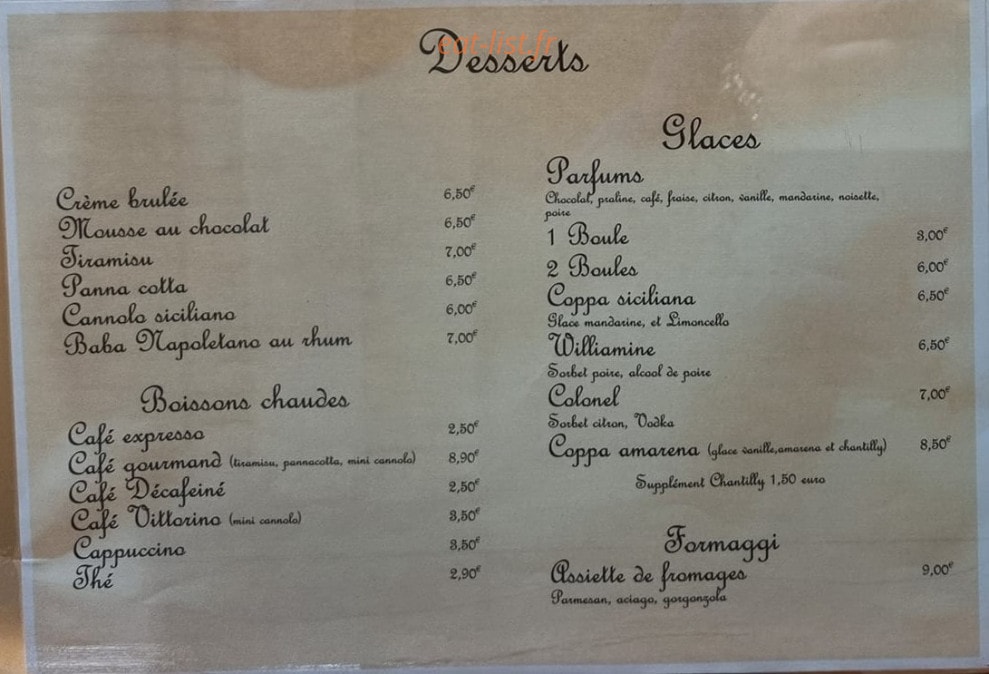 Desserts
eat-list.fr
Crème brulée 6,50€
Mousse au chocolat 6,50€
Tiramisu 7,00€
Panna cotta 6,50€
Cannolo siciliano 6,00€
Baba Napoletano au rhum 7,00€
Boissons chaudes
Café expresso 2,50€
Café gourmand (tiramisu, pannacotta, mini cannolo) 8,90€
Café Décafeiné 2,50€
Café Vittorino (mini cannolo) 3,50€
Cappuccino 3,50€
Thé 2,90€
Glaces
Parfums
Chocolat, praline, café, fraise, citron, vanille, mandarine, noisette,
poire
1 Boule 3,00€
2 Boules 6,00€
Coppa siciliana 6,50€
Glace mandarine, et Limoncello
Williamine 6,50€
Sorbet poire, alcool de poire
Colonel 7,00€
Sorbet citron, Vodka
Coppa amarena (glace vanille,amarena et chantilly) 8,50€
Supplément Chantilly 1,50 euro
Formaggi
Assiette de fromages 9,00€
Parmesan, aciago, gorgonzola